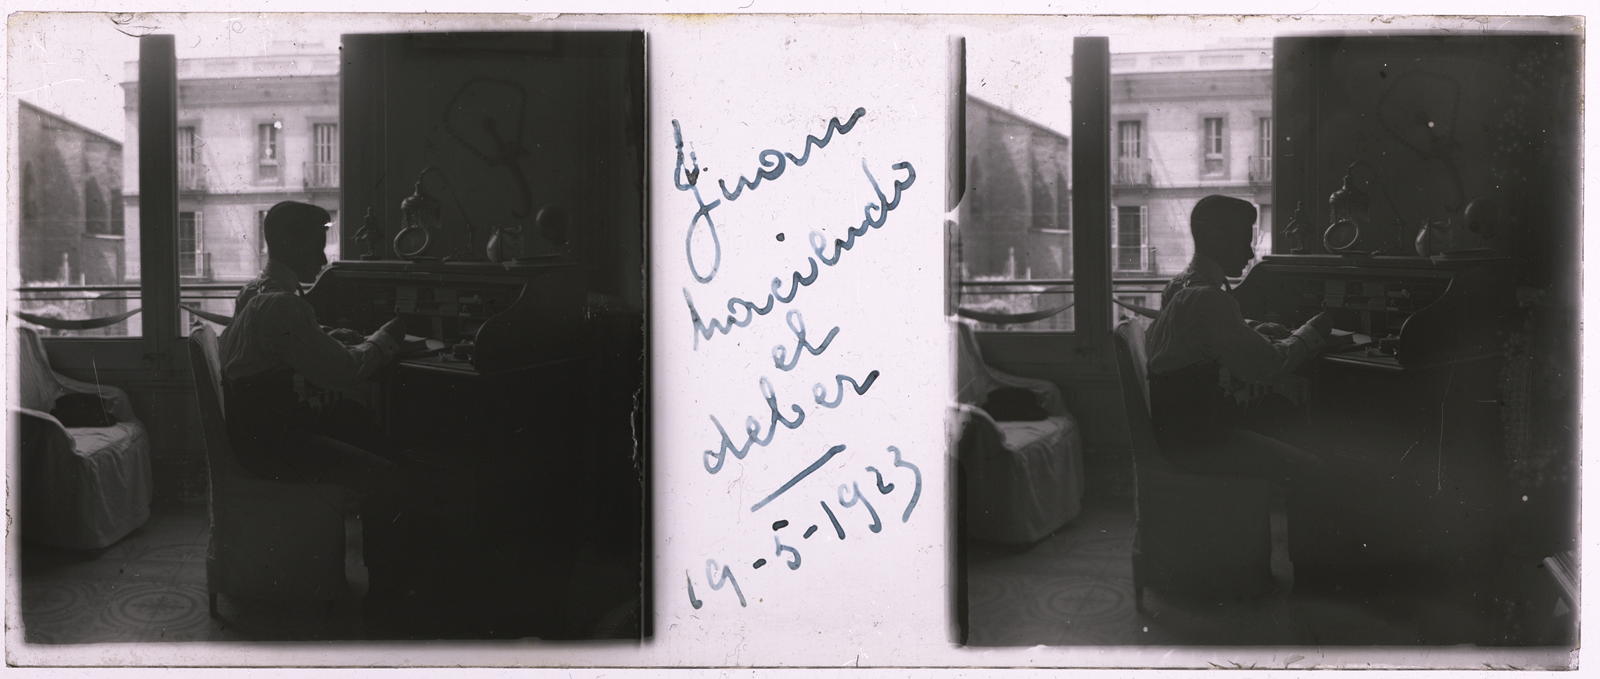 Juan
haciendo
el
deber
19-5-1923